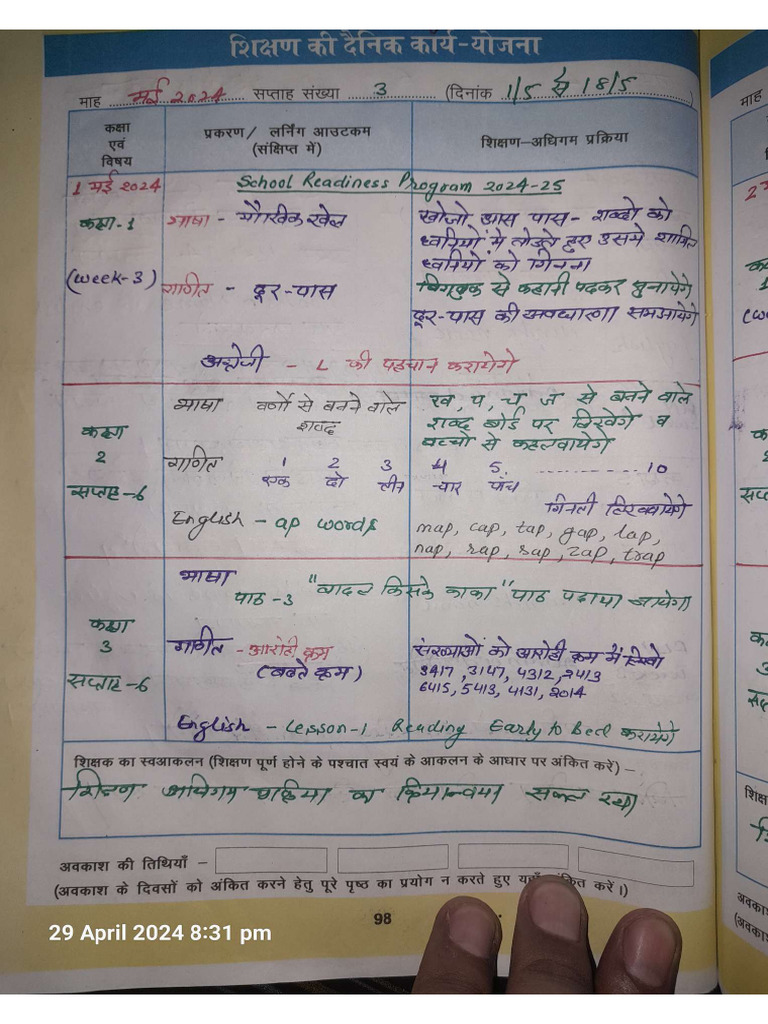 शिक्षण की दैनिक कार्य-योजना
माह मई 2024 सप्ताह संख्या 3 (दिनांक 1/5 से 18/5)
कक्षा एवं विषय
प्रकरण/ लर्निंग आउटकम (संक्षिप्त में)
शिक्षण-अधिगम प्रक्रिया
1 मई 2024 School Readiness Program 2024-25
कक्षा-1
(week-3)
भाषा - मौखिक खेल
खोजो आस पास - शब्दो को
ध्वनियों में तोड़ते हुए उसमे शामिल
ध्वनियों को गिनना
गणित - दूर-पास
बिगबुक से कहानी पढकर सुनायेगे
दूर-पास की अवधारणा समझायेगे
अंग्रेजी - L की पहचान करायेगे
कक्षा
2
सप्ताह-6
भाषा वर्णो से बनने वाले
शब्द
ख, प, च, ज से बनने वाले
शब्द बोर्ड पर लिखेगे व
बच्चो से कहलवायेगे
गणित 1 2 3 4 5 .......... 10
एक दो तीन चार पांच
गिनती लिखवायेगे
English - ap words
map, cap, tap, gap, lap,
nap, rap, sap, zap, trap
कक्षा
3
सप्ताह-6
भाषा
पाठ-3 "बादल किसके काका" पाठ पढाया जायेगा
गणित - आरोही क्रम
(बढते क्रम)
संख्याओं को आरोही क्रम में लिखो
3417, 3147, 4312, 2413
6415, 5413, 4131, 2014
English - Lesson-1 Reading Early to Bed करायेगे
शिक्षक का स्वआकलन (शिक्षण पूर्ण होने के पश्चात स्वयं के आकलन के आधार पर अंकित करें) –
शिक्षण अधिगम प्रक्रिया का क्रियान्वयन सफल रहा
अवकाश की तिथियाँ –
(अवकाश के दिवसों को अंकित करने हेतु पूरे पृष्ठ का प्रयोग न करते हुए यहाँ अंकित करें।)
98
29 April 2024 8:31 pm